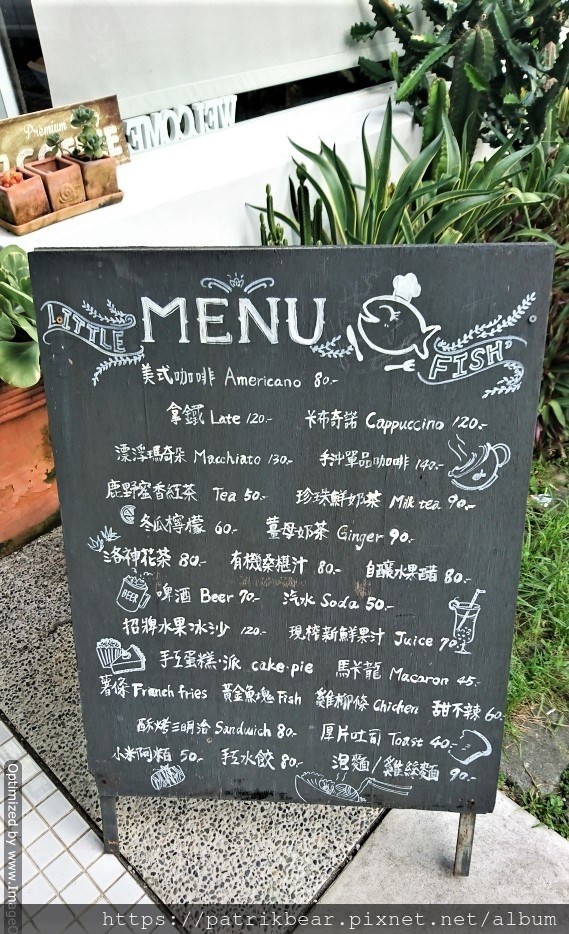 Premium
COFFEE
WELCOME
LITTLE
MENU
FISH
美式咖啡 Americano 80.-
拿鐵 Late 120.- 卡布奇諾 Cappuccino 120.-
漂浮瑪奇朵 Macchiato 130.- 手沖單品咖啡 140.-
鹿野蜜香紅茶 Tea 50.- 珍珠鮮奶茶 Milk tea 90.-
冬瓜檸檬 60.- 薑母奶茶 Ginger 90.-
洛神花茶 80.- 有機桑椹汁 80.- 自釀水果醋 80.-
BEER
啤酒 Beer 70.- 汽水 Soda 50.-
招牌水果冰沙 120.- 現榨新鮮果汁 Juice 70
手工蛋糕·派 cake·pie 馬卡龍 Macaron 45.-
薯條 French fries 黃金魚塊 Fish 雞柳條 Chichen 甜不辣 60.
酥烤三明治 Sandwich 80.- 厚片吐司 Toast 40.-
小米阿粨 50.- 手工水餃 80.- 泡麵/雞絲麵 90.-
Optimized by www.ImageO
https://patrikbear.pixnet.net/album